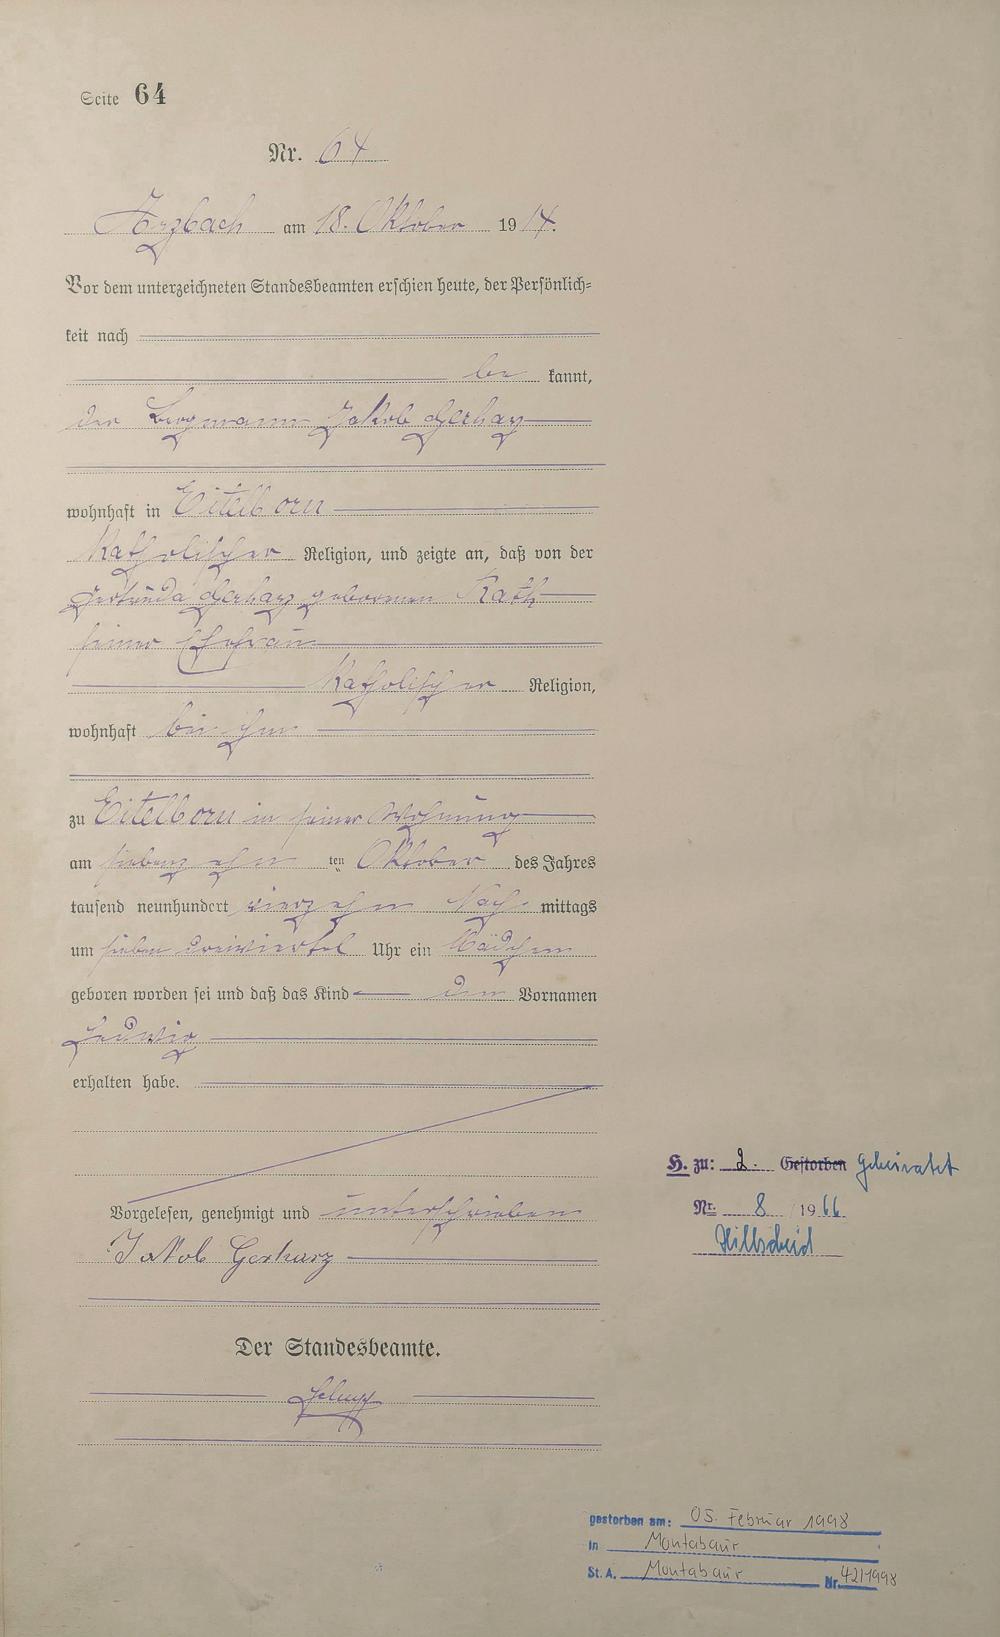 Seite 64
Nr. 64
Arzbach am 18. Oktober 1914.
Vor dem unterzeichneten Standesbeamten erschien heute, der Persönlich=
keit nach
be kannt,
der Bergmann Jakob Gerharz
wohnhaft in Eitelborn
Katholischer Religion, und zeigte an, daß von der
Gertruda Gerharz geborenen Kath
seiner Ehefrau
Katholischer Religion,
wohnhaft bei ihm
zu Eitelborn in seiner Wohnung
am siebenzehn ten Oktober des Jahres
tausend neunhundert vierzehn Nach mittags
um sieben dreiviertel Uhr ein Mädchen
geboren worden sei und daß das Kind den Vornamen
Hedwig
erhalten habe.
Vorgelesen, genehmigt und unterschrieben
Jakob Gerharz
Der Standesbeamte.
H. zu: 2. Gestorben Geheiratet
Nr. 8 / 1966
Hillscheid
gestorben am: 05. Februar 1998
in Montabaur
St. A. Montabaur Nr. 42/1998